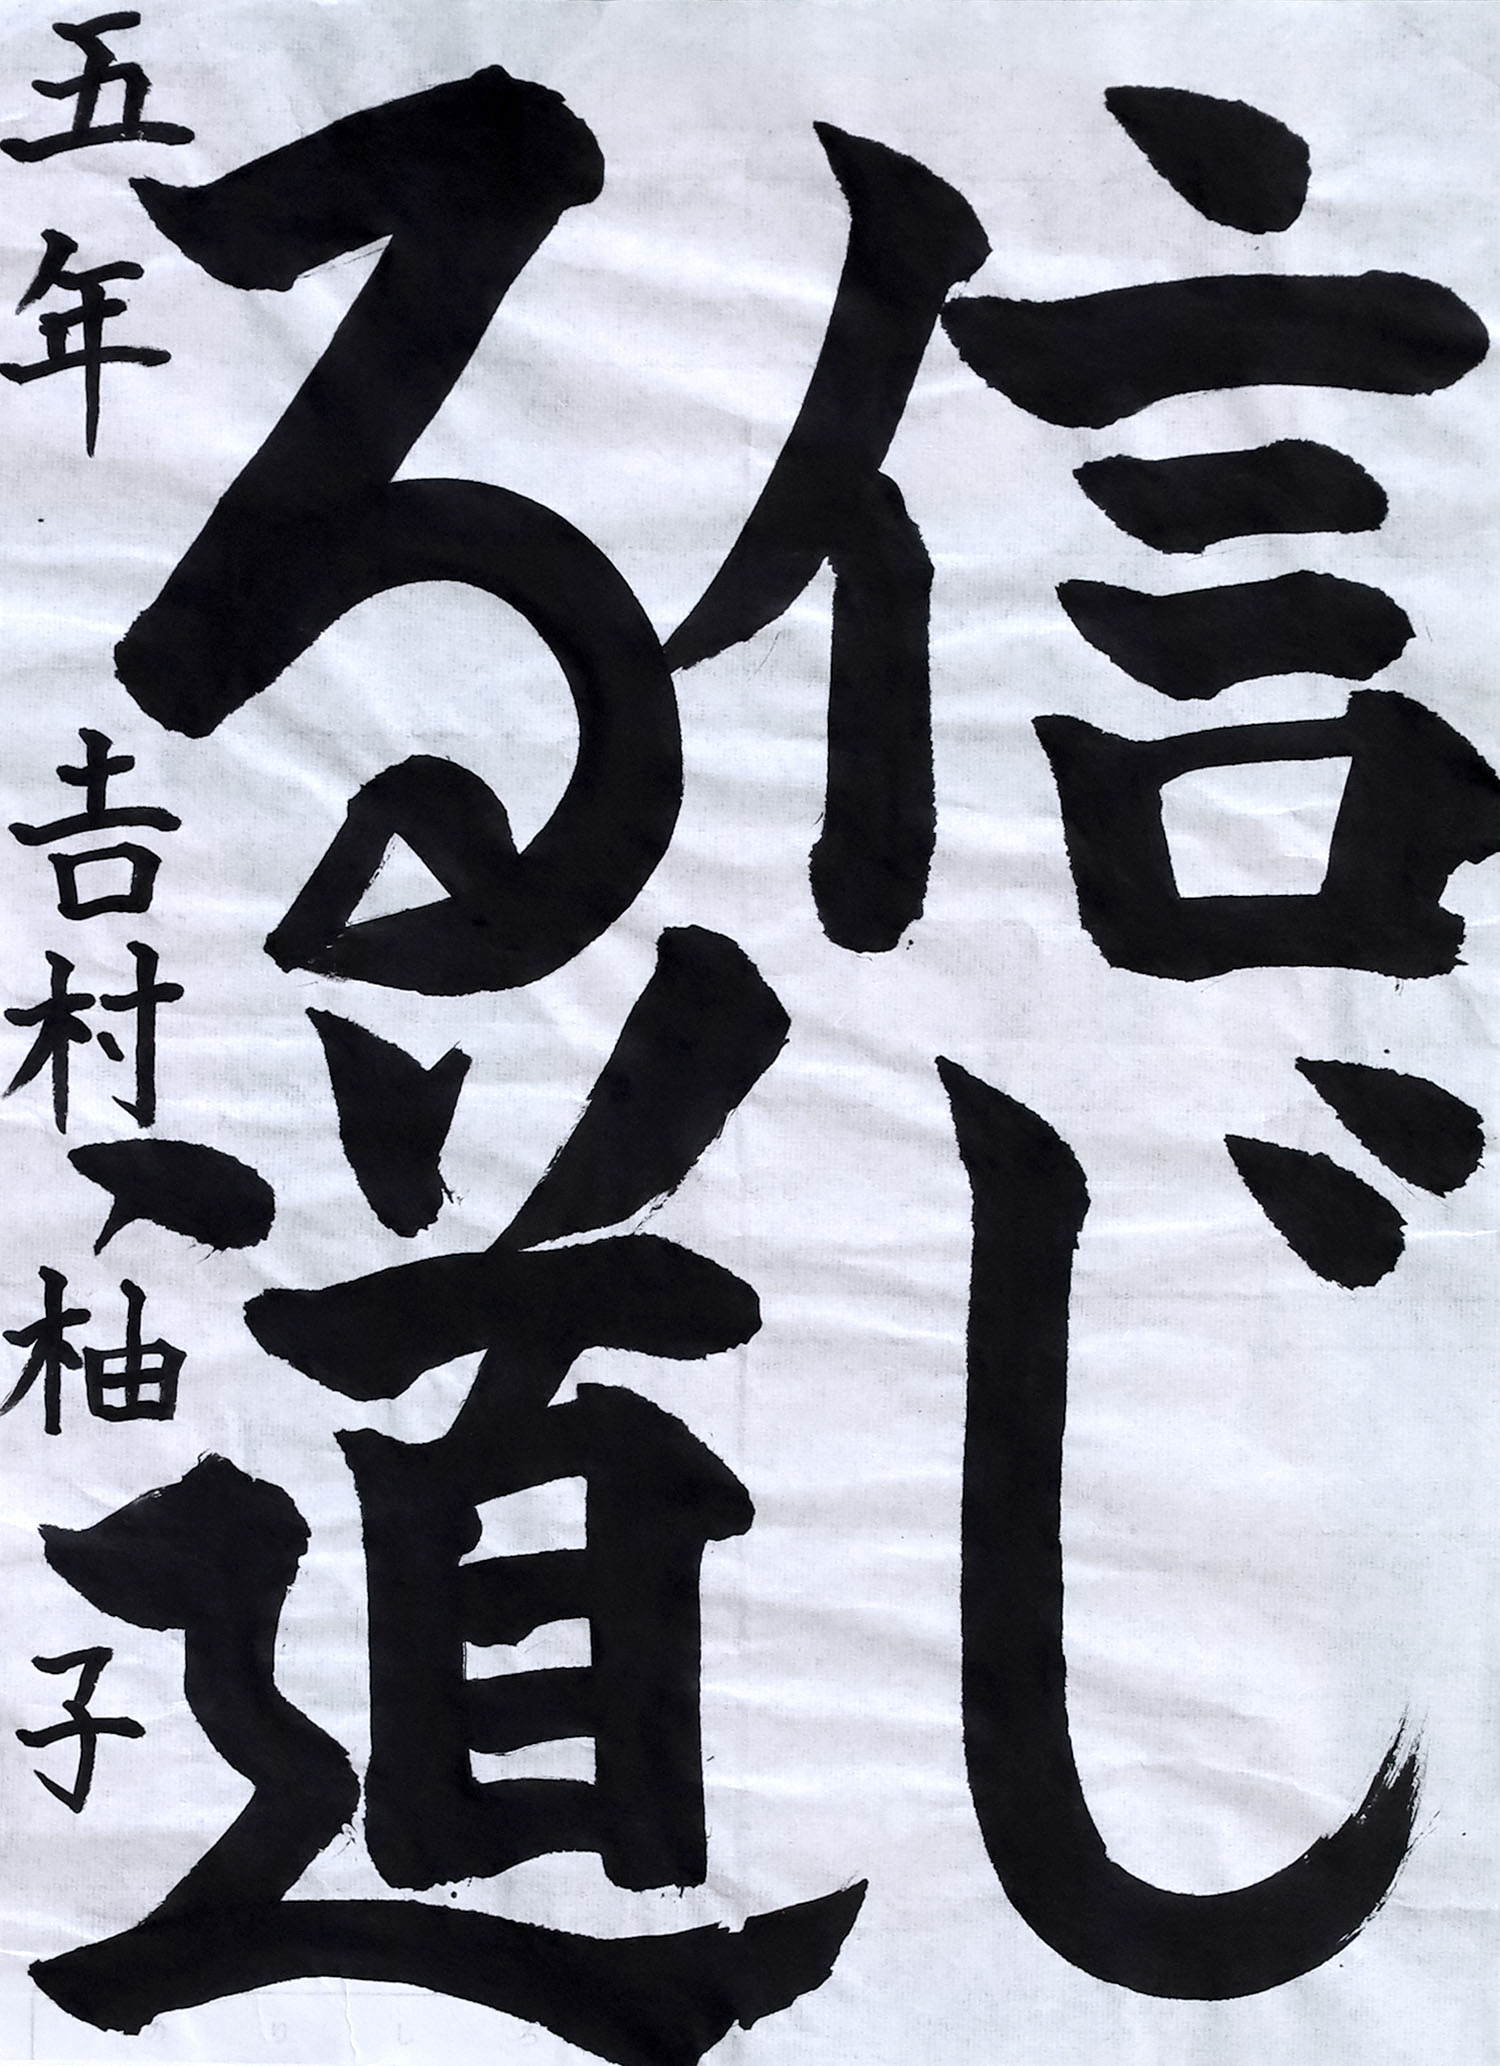 信じ
る道
五年 𠮷村柚子